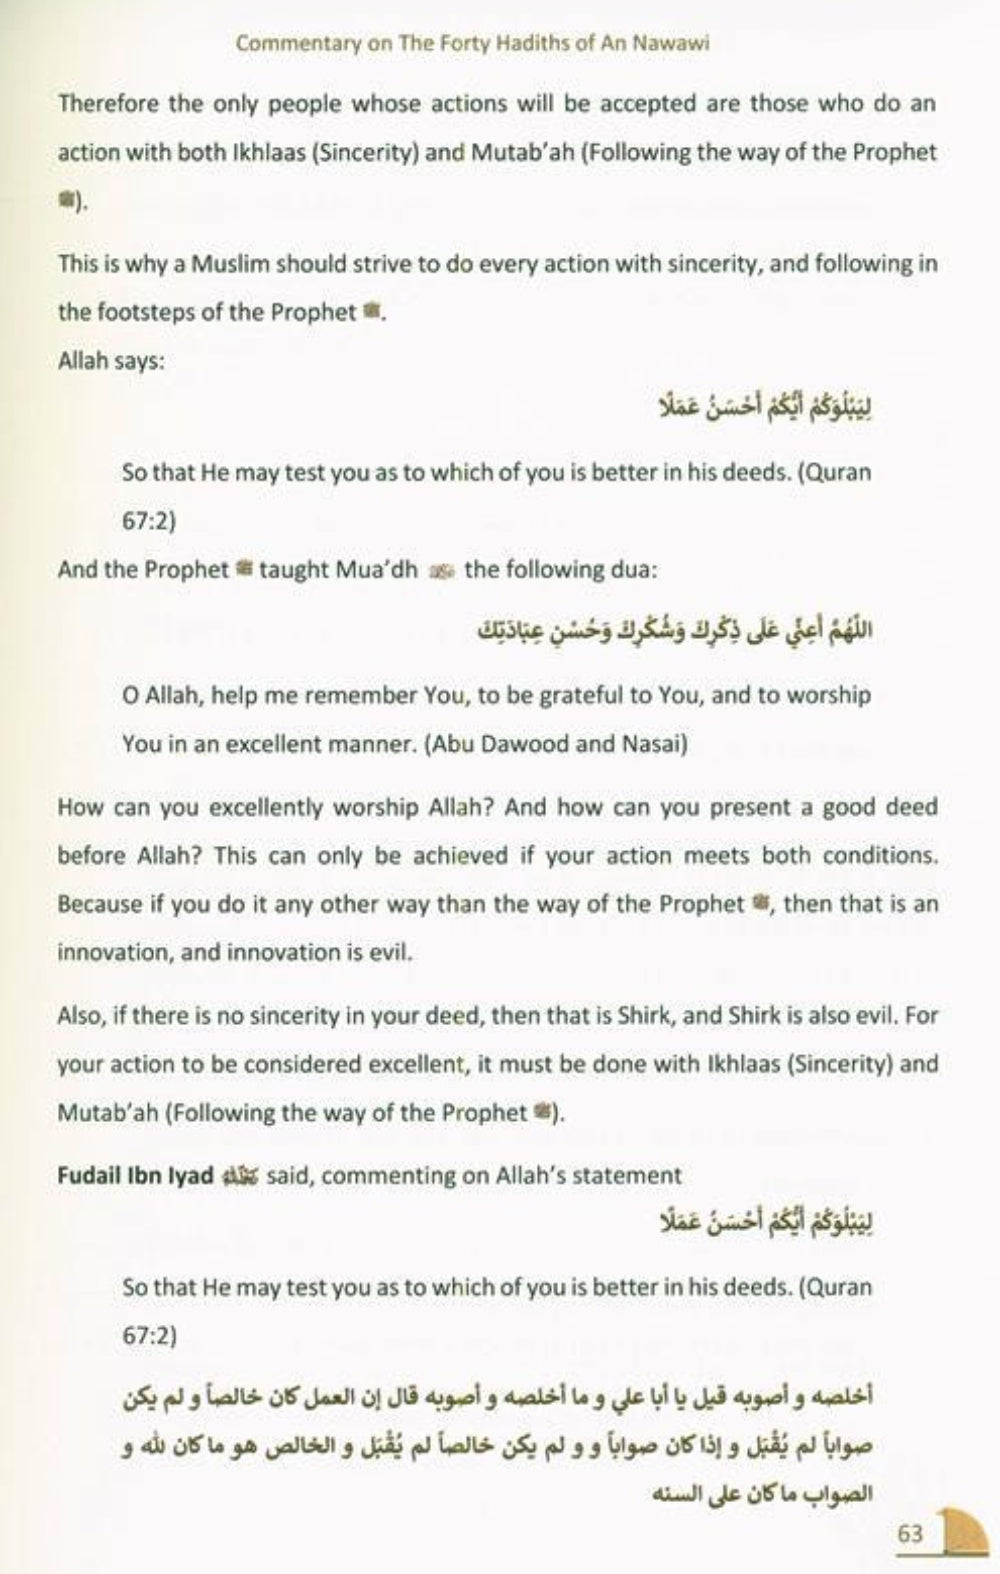 Commentary on The Forty Hadiths of An Nawawi
Therefore the only people whose actions will be accepted are those who do an
action with both Ikhlaas (Sincerity) and Mutab'ah (Following the way of the Prophet
ﷺ).
This is why a Muslim should strive to do every action with sincerity, and following in
the footsteps of the Prophet ﷺ.
Allah says:
لِيَبْلُوَكُمْ أَيُّكُمْ أَحْسَنُ عَمَلًا
So that He may test you as to which of you is better in his deeds. (Quran
67:2)
And the Prophet ﷺ taught Mua'dh the following dua:
اللَّهُمَّ أَعِنِّي عَلَى ذِكْرِكَ وَشُكْرِكَ وَحُسْنِ عِبَادَتِكَ
O Allah, help me remember You, to be grateful to You, and to worship
You in an excellent manner. (Abu Dawood and Nasai)
How can you excellently worship Allah? And how can you present a good deed
before Allah? This can only be achieved if your action meets both conditions.
Because if you do it any other way than the way of the Prophet ﷺ, then that is an
innovation, and innovation is evil.
Also, if there is no sincerity in your deed, then that is Shirk, and Shirk is also evil. For
your action to be considered excellent, it must be done with Ikhlaas (Sincerity) and
Mutab'ah (Following the way of the Prophet ﷺ).
Fudail Ibn Iyad said, commenting on Allah's statement
لِيَبْلُوَكُمْ أَيُّكُمْ أَحْسَنُ عَمَلًا
So that He may test you as to which of you is better in his deeds. (Quran
67:2)
أخلصه و أصوبه قيل يا أبا علي و ما أخلصه و أصوبه قال إن العمل كان خالصاً و لم يكن
صواباً لم يُقْبَل و إذا كان صواباً و و لم يكن خالصاً لم يُقْبَل و الخالص هو ما كان لله و
الصواب ما كان على السنه
63